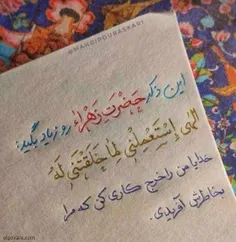 @MAHDIPOURASKARI
این ذکر حضرت زهرا رو زیاد بگید:
الهی اِسْتَعْمِلْنی لِما خَلَقْتَنی لَهُ
خدایا من را خرج کاری کن که مرا
بخاطرش آفریدی.